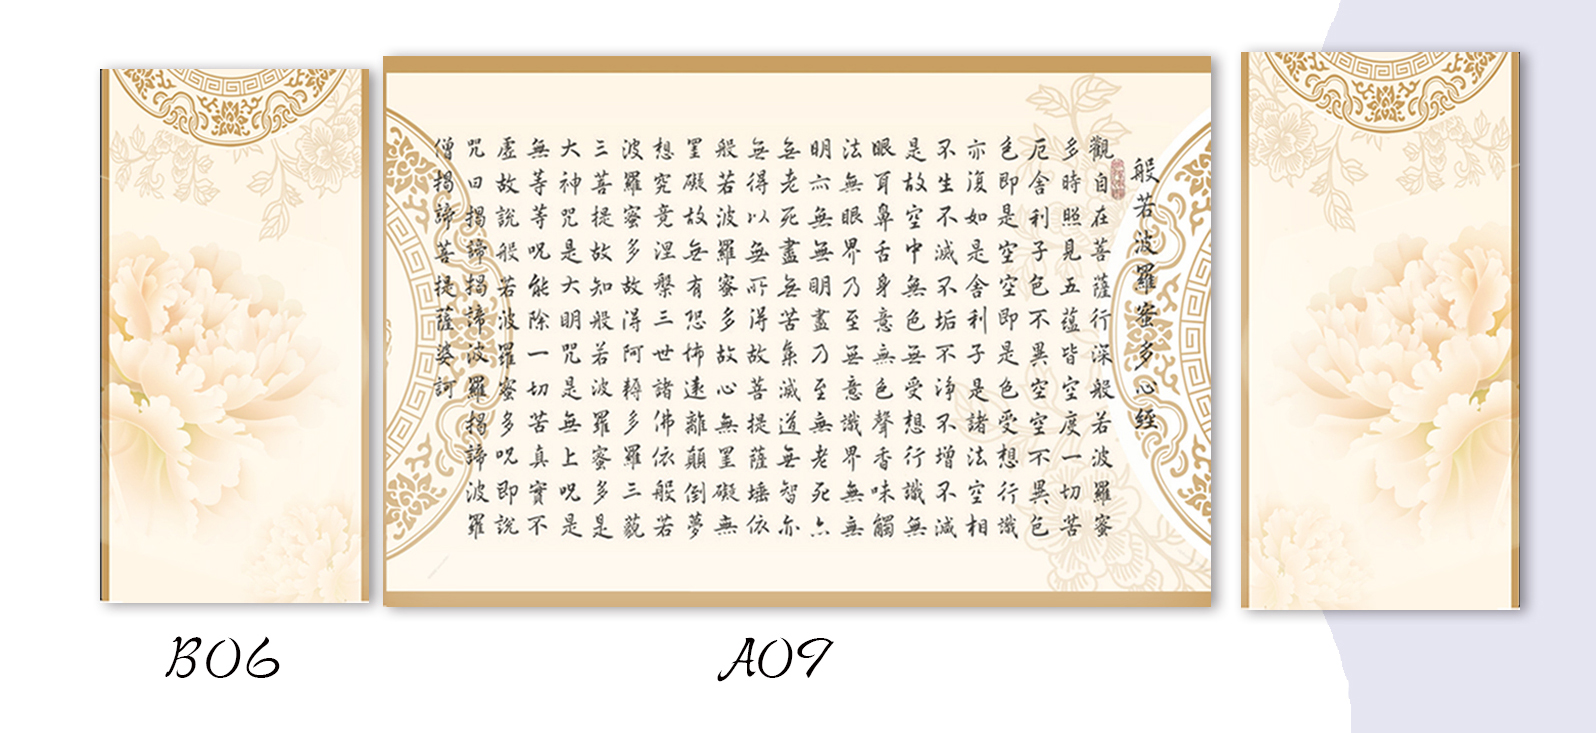 般若波羅蜜多心經
觀自在菩薩行深般若波羅蜜
多時照見五蘊皆空度一切苦
厄舍利子色不異空空不異色
色即是空空即是色受想行識
亦復如是舍利子是諸法空相
不生不滅不垢不淨不增不減
是故空中無色無受想行識無
眼耳鼻舌身意無色聲香味觸
法無眼界乃至無意識界無無
明亦無無明盡乃至無老死亦
無老死盡無苦集滅道無智亦
無得以無所得故菩提薩埵依
般若波羅蜜多故心無罣礙無
罣礙故無有恐怖遠離顛倒夢
想究竟涅槃三世諸佛依般若
波羅蜜多故得阿耨多羅三藐
三菩提故知般若波羅蜜多是
大神咒是大明咒是無上呪是
無等等呪能除一切苦真實不
虛故說般若波羅蜜多呪即說
咒曰揭諦揭諦波羅揭諦波羅
僧揭諦菩提薩婆訶
B06
A09